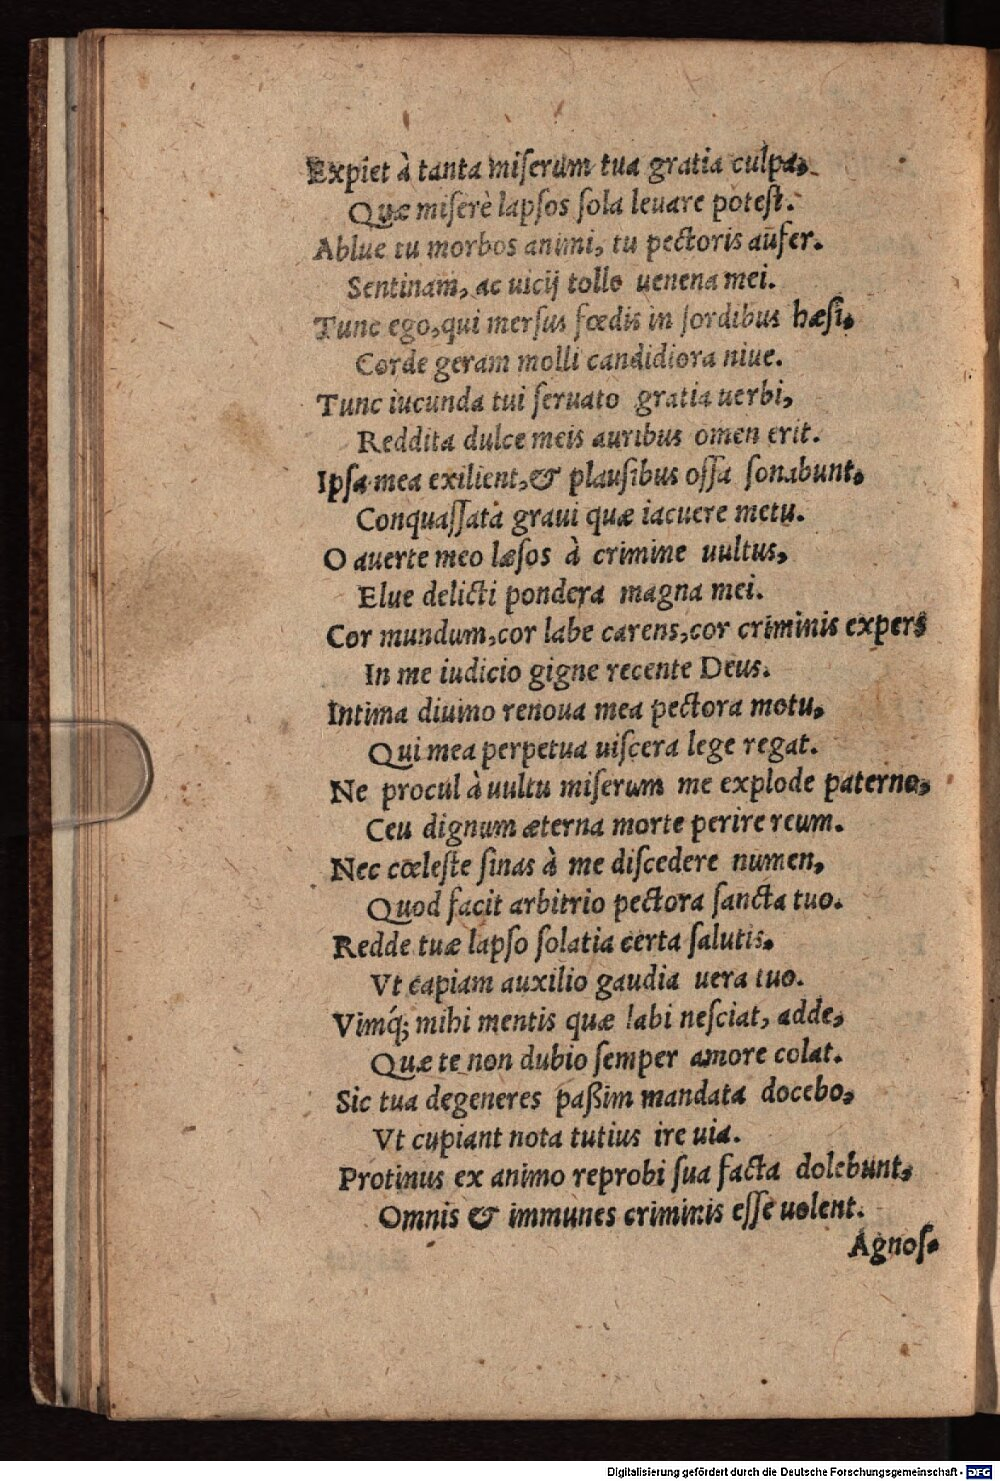 Expiet à tanta miſerum tua gratia culpa,
Quæ miſerè lapſos ſola leuare poteſt.
Ablue tu morbos animi, tu pectoris aūfer.
Sentinam, ac uicij tolle uenena mei.
Tunc ego, qui merſus fœdis in ſordibus hæſi,
Corde geram molli candidiora niue.
Tunc iucunda tui ſeruato gratia uerbi,
Reddita dulce meis auribus omen erit.
Ipſa mea exilient, & plauſibus oſſa ſonabunt,
Conquaſſata graui quæ iacuere metu.
O auerte meo læſos à crimine uultus,
Elue delicti pondera magna mei.
Cor mundum, cor labe carens, cor criminis expers
In me iudicio gigne recente Deus.
Intima diuino renoua mea pectora motu,
Qui mea perpetua uiſcera lege regat.
Ne procul à uultu miſerum me explode paterno,
Ceu dignum æterna morte perire reum.
Nec cœleſte ſinas à me diſcedere numen,
Quod facit arbitrio pectora ſancta tuo.
Redde tuæ lapſo ſolatia certa ſalutis.
Vt capiam auxilio gaudia uera tuo.
Vimq́; mihi mentis quæ labi neſciat, adde,
Quæ te non dubio ſemper amore colat.
Sic tua degeneres paßim mandata docebo,
Vt cupiant nota tutius ire uia.
Protinus ex animo reprobi ſua facta dolebunt,
Omnis & immunes criminis eſſe uolent.
Agnoſ-
Digitalisierung gefördert durch die Deutsche Forschungsgemeinschaft - DFG